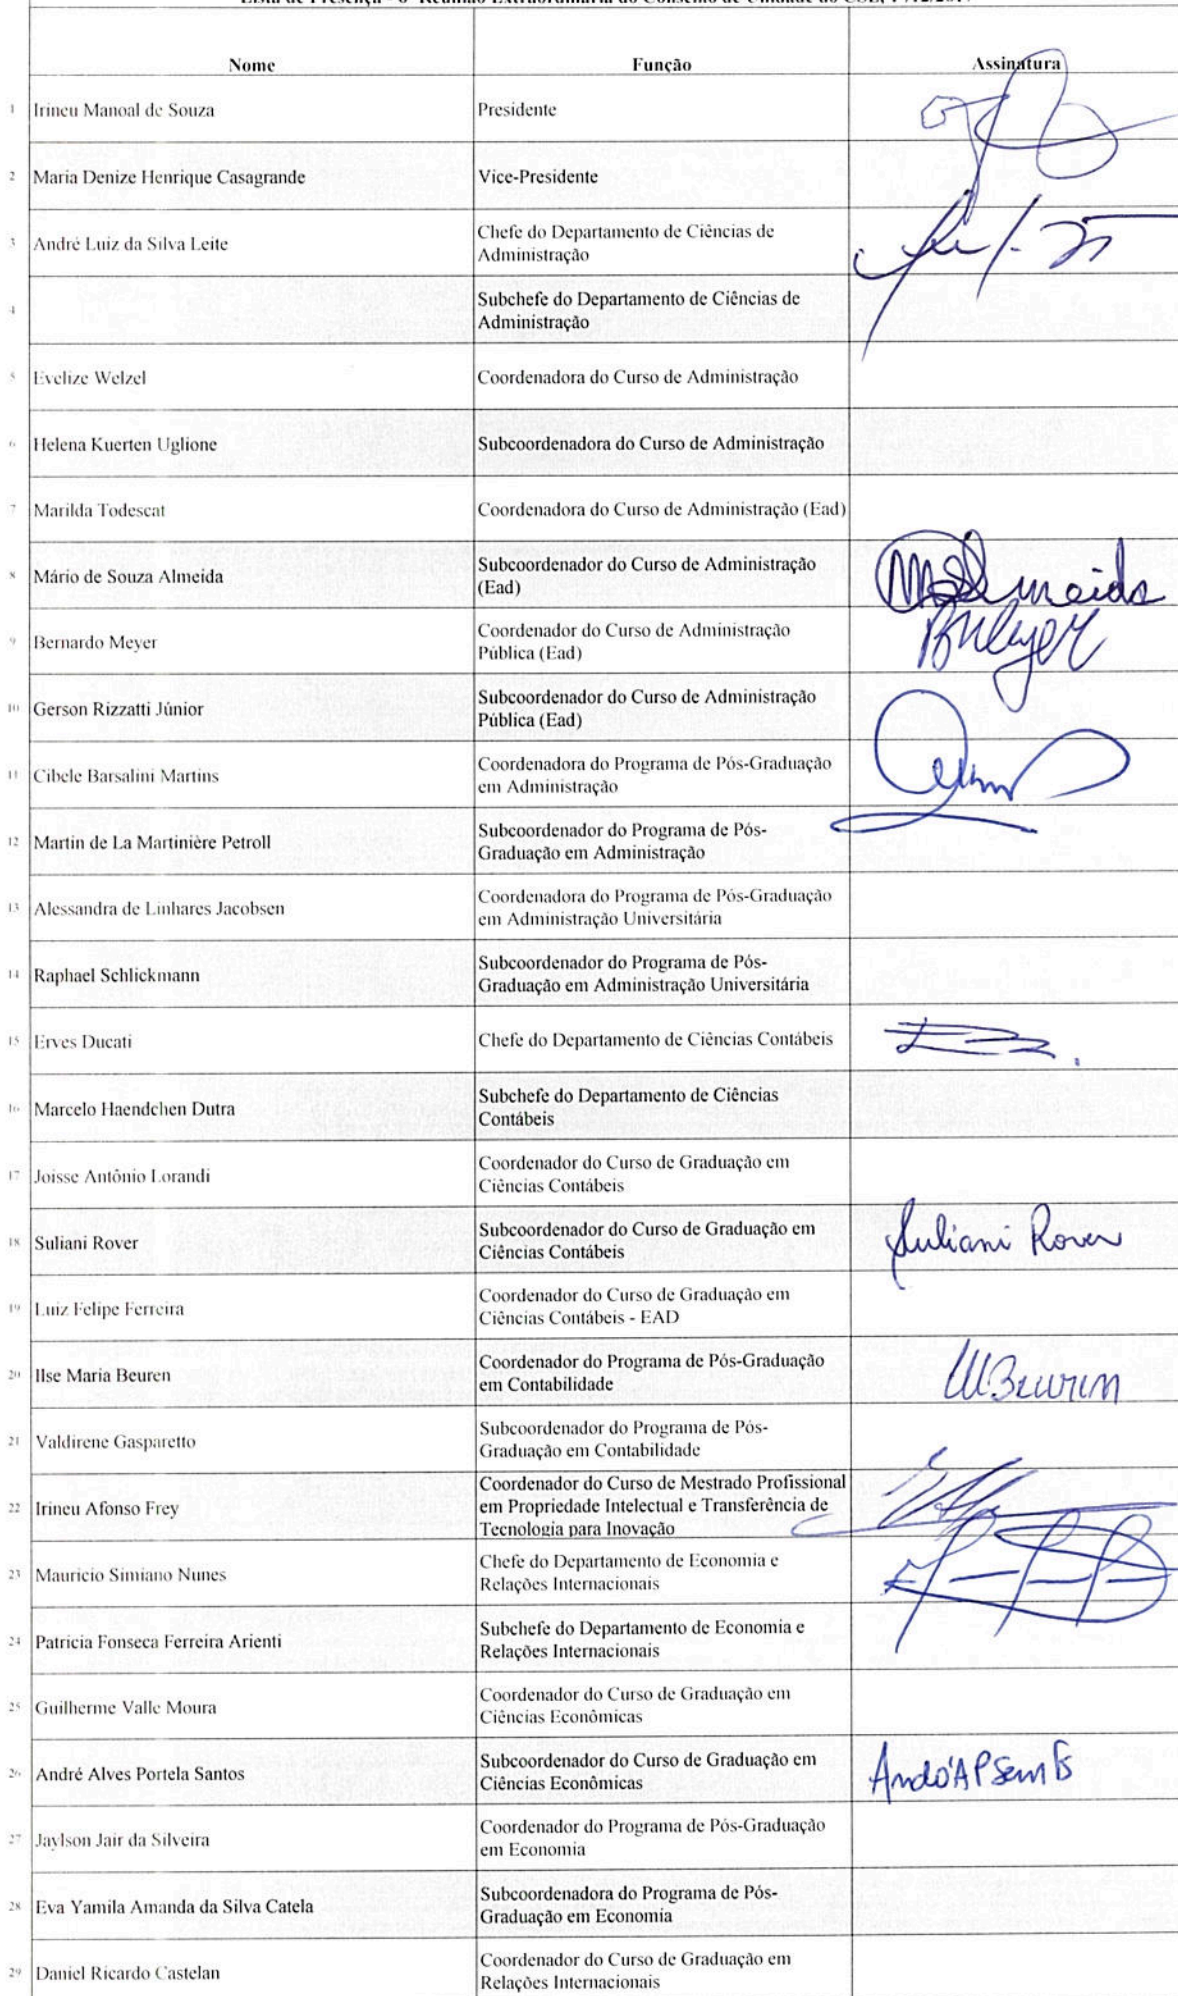 Nome Função Assinatura
1 Irineu Manoal de Souza Presidente
2 Maria Denize Henrique Casagrande Vice-Presidente
3 André Luiz da Silva Leite Chefe do Departamento de Ciências de
Administração
4 Subchefe do Departamento de Ciências de
Administração
5 Evelize Welzel Coordenadora do Curso de Administração
6 Helena Kuerten Uglione Subcoordenadora do Curso de Administração
7 Marilda Todescat Coordenadora do Curso de Administração (Ead)
8 Mário de Souza Almeida Subcoordenador do Curso de Administração
(Ead)
9 Bernardo Meyer Coordenador do Curso de Administração
Pública (Ead)
BMeyer
10 Gerson Rizzatti Júnior Subcoordenador do Curso de Administração
Pública (Ead)
11 Cibele Barsalini Martins Coordenadora do Programa de Pós-Graduação
em Administração
12 Martin de La Martinière Petroll Subcoordenador do Programa de Pós-
Graduação em Administração
13 Alessandra de Linhares Jacobsen Coordenadora do Programa de Pós-Graduação
em Administração Universitária
14 Raphael Schlickmann Subcoordenador do Programa de Pós-
Graduação em Administração Universitária
15 Erves Ducati Chefe do Departamento de Ciências Contábeis
16 Marcelo Haendchen Dutra Subchefe do Departamento de Ciências
Contábeis
17 Joisse Antônio Lorandi Coordenador do Curso de Graduação em
Ciências Contábeis
18 Suliani Rover Subcoordenador do Curso de Graduação em
Ciências Contábeis
Suliani Rover
19 Luiz Felipe Ferreira Coordenador do Curso de Graduação em
Ciências Contábeis - EAD
20 Ilse Maria Beuren Coordenador do Programa de Pós-Graduação
em Contabilidade
21 Valdirene Gasparetto Subcoordenador do Programa de Pós-
Graduação em Contabilidade
22 Irineu Afonso Frey Coordenador do Curso de Mestrado Profissional
em Propriedade Intelectual e Transferência de
Tecnologia para Inovação
23 Mauricio Simiano Nunes Chefe do Departamento de Economia e
Relações Internacionais
24 Patricia Fonseca Ferreira Arienti Subchefe do Departamento de Economia e
Relações Internacionais
25 Guilherme Valle Moura Coordenador do Curso de Graduação em
Ciências Econômicas
26 André Alves Portela Santos Subcoordenador do Curso de Graduação em
Ciências Econômicas
27 Jaylson Jair da Silveira Coordenador do Programa de Pós-Graduação
em Economia
28 Eva Yamila Amanda da Silva Catela Subcoordenadora do Programa de Pós-
Graduação em Economia
29 Daniel Ricardo Castelan Coordenador do Curso de Graduação em
Relações Internacionais